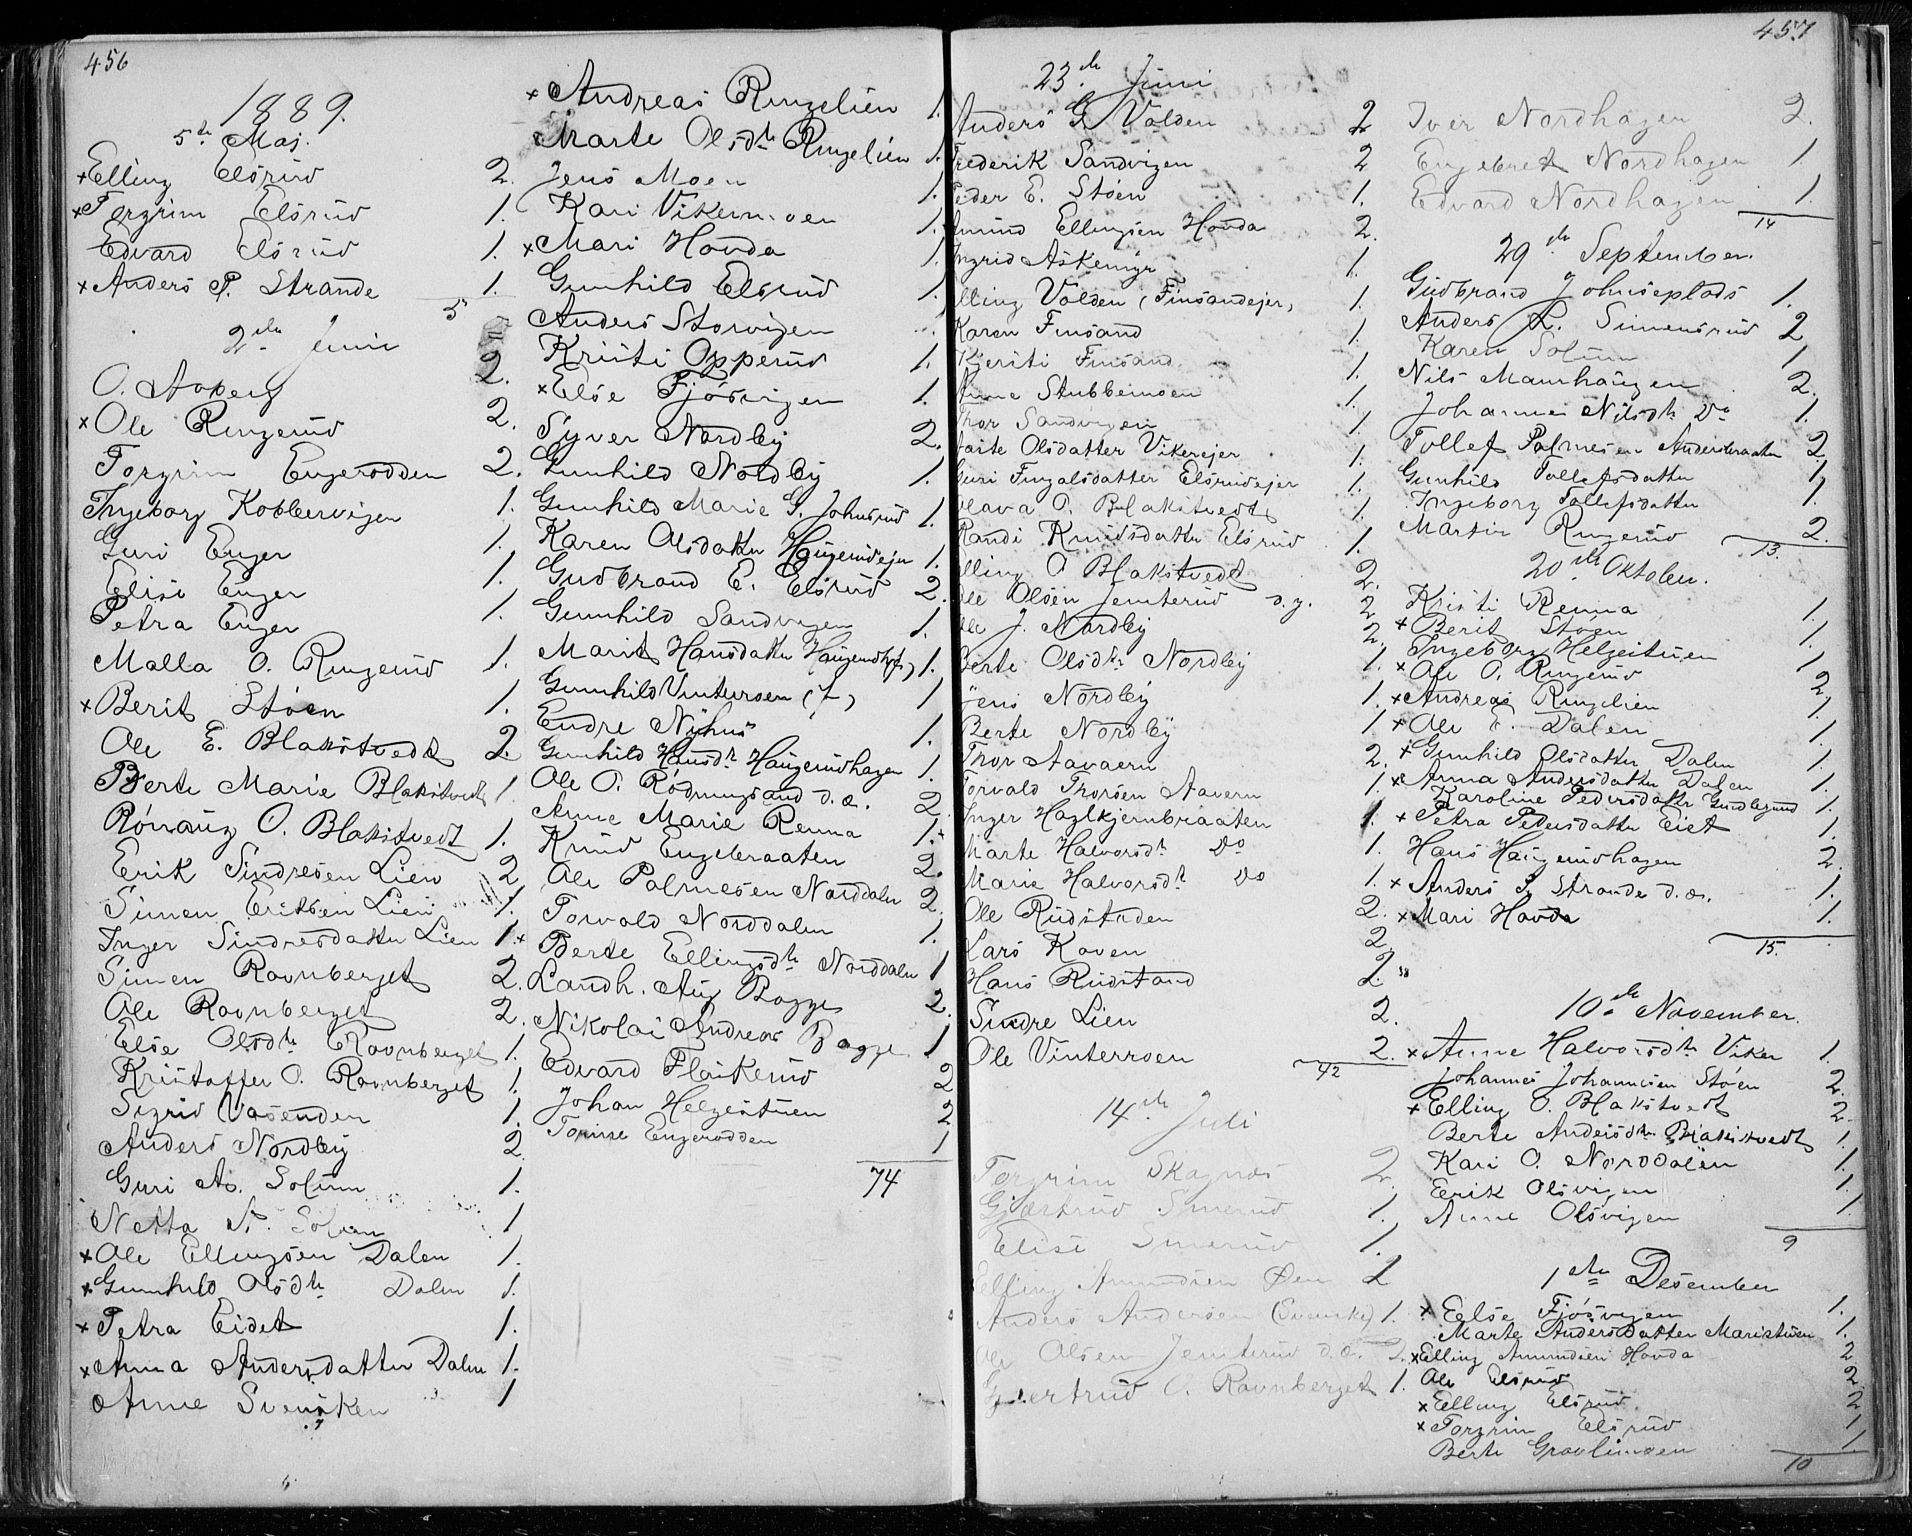 456
1889.
5te Maj.
×Elling Elsrud 2.
×Torgrim Elsrud 1.
Edvard Elsrud 1.
×Anders P. Strande 1.
5
2den Juni
O. Aaberg 2.
×Ole Ringerud 2.
Torgrim Engerodden 2.
Ingeborg Kobbervigen 1.
Guri Enger 1.
Elisi Enger 1.
Petra Enger 1.
Malla O. Ringerud 1.
×Berit Støen 1.
Ole E. Blakstvedt 2.
Berte Marie Blakstvedt 1.
Rønaug O. Blakstvedt 1.
Erik Sindresen Lien 2
Simen Eriksen Lien 1.
Inger Sindresdatter Lien 1.
Simen Ravnberget 2.
Ole Ravnberget 2.
Else Olsdtr Ravnberget 1.
Kristoffer O. Ravnberget 1.
Sigrid Vasenden 1.
Anders Nordby 2.
Guri As. Solum 1.
Netta A. Solum 1
×Ole Ellingsen Dalen 1.
×Gunhild Olsdtr Dalen 1.
×Petra Eidet 1.
×Anna Andersdatter Dalen 1.
Anne Svensken 1
×Andreas Ringelien 1.
Marte Olsdtr Ringelien 1.
Jens Moen 1.
Kari Vikermoen 1.
×Mari Hovda 1.
Gunhild Elsrud 1.
Anders Storvigen 1.
Kristi Opperud 1.
×Else Fjøsvigen 1.
Syver Nordby 2.
Gunhild Nordby 1.
Gunhild Marie G. Johnsrud 1.
Karen Olsdatter Haugerudejer 1.
Gudbrand E. Elsrud 2.
Gunhild Sandvigen 1.
Marit Hansdatter Haugerud 1.
Gunhild Vinterroen (f) 1
Endre Nyhus 1.
Gunhild Hansdtr Haugerudhagen 1.
Ole O. Rødningsand d.æ. 2.
Anne Marie Renna 1.
Knud Engebraaten 2.
Ole Palmesen Norddalen 2.
Torvald Norddalen 1.
×Berte Ellingsdtr Norddalen 1
Landh. Aug Bagge 2.
Nikolai Andreas Bagge 1
Edvard Flaskerud 2
Johan Helgestuen 2
Tomine Engerodden 1
74
457
23de Juni
Anders G. Valden 2
Frederik Sandvigen 2
Peder E. Støen 1.
Amund Ellingsen Hovda 2.
Ingrid Askemyr 1.
Elling Valden (Finsandejer) 1.
Karen Finsand 1.
Kjersti Finsand 1.
Anne Stubbemoen 1.
Thor Sandvigen 1
Marte Olsdatter Vikerejer 1.
Guri Fingalsdatter Elsrudejer 1.
Olava O. Blakstvedt 1.
Randi Knudsdatter Elsrud 1.
Elling O Blakstvedt 2.
Ole Olsen Jemterud d.y. 2
Ole J. Nordby 2.
Berte Olsdtr Nordby 1.
Jens Nordby 1.
Berte Nordby 1
Thor Aavaern 2.
Torvald Thorsen Aavern 1.
Inger Haglkjernbraaten 1.
Marte Halvorsdtr Do 1.
Marie Halvorsdtr Do 1.
Ole Rudstaden 2.
Lars Kaven 2.
Hans Rudstand 2
Sindre Lien 2.
Ole Vinterroen 2.
42
14de Juli
Torgrim Skagnæs 2.
Gjærtrud Smerud 1.
Elisi Smerud 1.
Elling Amundsen Øen 2
Anders Andersen (Svenske) 1.
Ole Olsen Jemterud d.æ. 2.
Gjertrud O. Ravnberget 1.
Iver Nordhagen 2.
Engebret Nordhagen 1
Edvard Nordhagen 1.
14
29de September.
Gudbrand Johnseplads 1.
Anders L. Simensrud 2
Karen Solum 1
Nils Maurhaugen 2.
Johanne Nilsdtr Do 1.
Tollef Palmesen Andersbraaten 2.
Gunhild Tollefsdatter 1
Ingeborg Tollefsdatter 1.
Martin Ringerud 2.
13.
20de Oktober.
Kristi Renna 1.
×Berit Støen 1.
Ingeborg Helgestuen 1
×Ole O. Ringerud 2
×Andreas Ringelien 1.
×Ole E. Dalen 1.
×Gunhild Olsdatter Dalen 1.
×Anna Andersdatter Dalen 1.
Karoline Pedersdatter Gundegrud 1.
×Petra Pedersdatter Eiet 1.
Hans Haugerudhagen 2.
×Anders P. Strande d.æ. 1.
×Mari Hovda 1.
15.
10de November.
×Anne Halvorsdtr Viker 1.
Johannes Johannesen Støen 2.
×Elling O. Blakstvedt 2.
Berte Andersdtr Blakstvedt 1.
Kari O. Norddalen 1.
Erik Olsvigen 1.
Anne Olsvigen 1.
9
1ste Desember
×Else Fjøsvigen 1.
Marte Andersdatter Maristuen 1.
×Elling Amundsen Hovda 2
Ole Elsrud 2.
×Elling Elsrud 2
×Torgrim Elsrud 1
Berte Gravlimoen 1
10